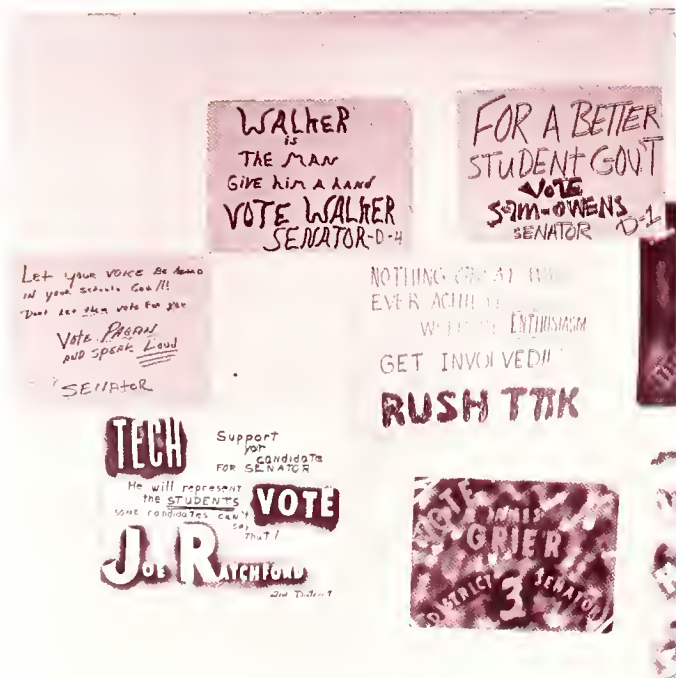 WALKER
is
THE MAN
GIVE him A hAND
VOTE WALKER
SENATOR-D-4
FOR A BETTER
STUDENT GOV'T
VOTE
SAM-OWENS
SENATOR D-1
Let your VOICE Be
IN your Schools Gov!!!
Dont let them vote For you
Vote PAGAN
AND SPEAK Loud
SENAtoR
NOTHING GREAT
EVER
ENTHUSIASM
GET INVOLVED!!
RUSH TΠK
TECH
Support
yor
candidate
FOR SENATOR
He will represent
the STUDENTS
some candidates can't
say
That!
VOTE
JOE RATCHFORD
2nd District
VOTE
GRIER
DISTRICT 3 SENATOR